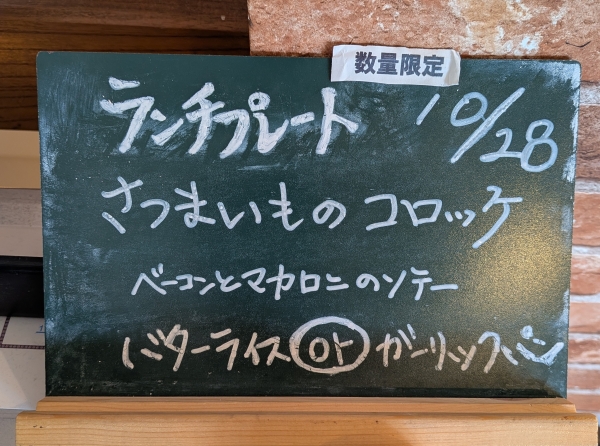 数量限定
ランチプレート 10/28
さつまいものコロッケ
ベーコンとマカロニのソテー
バターライス or ガーリックパン